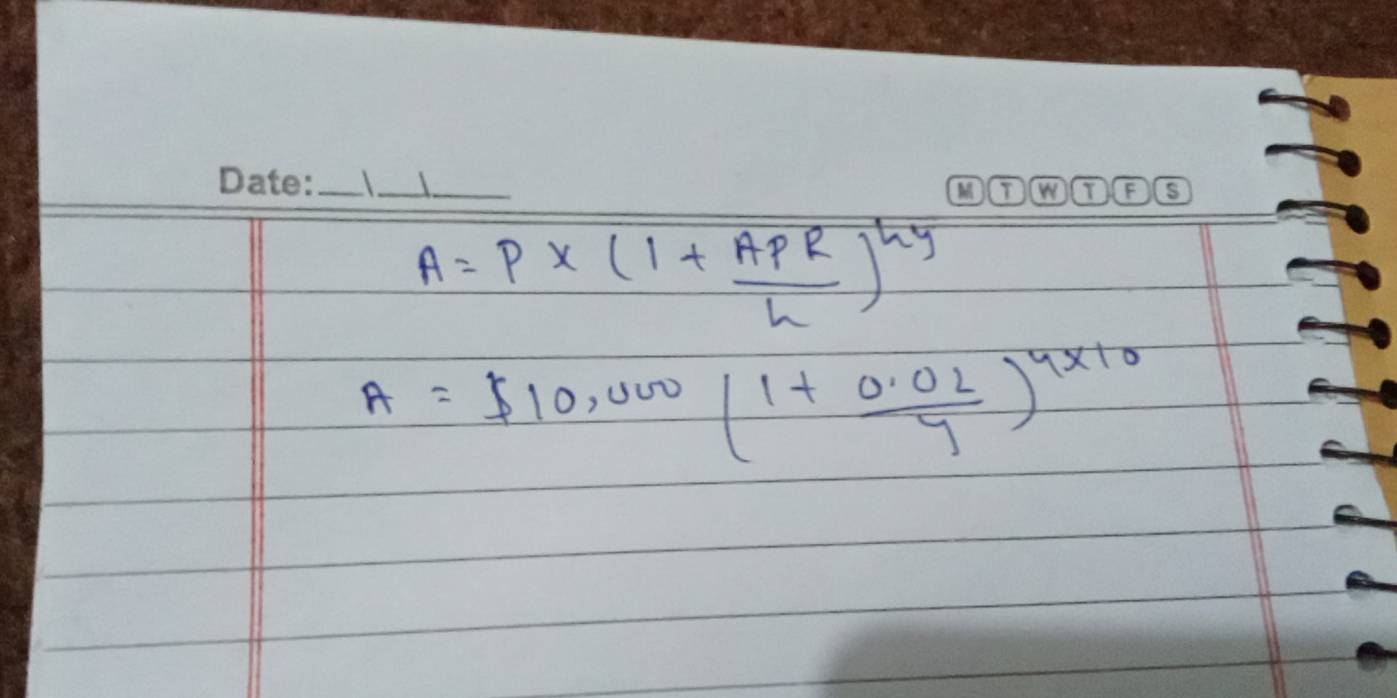 Date: _\_\_
M T W T F S
A = P × (1 + APR/n)^ny
A = $10,000 (1 + 0.02/4)^4×10